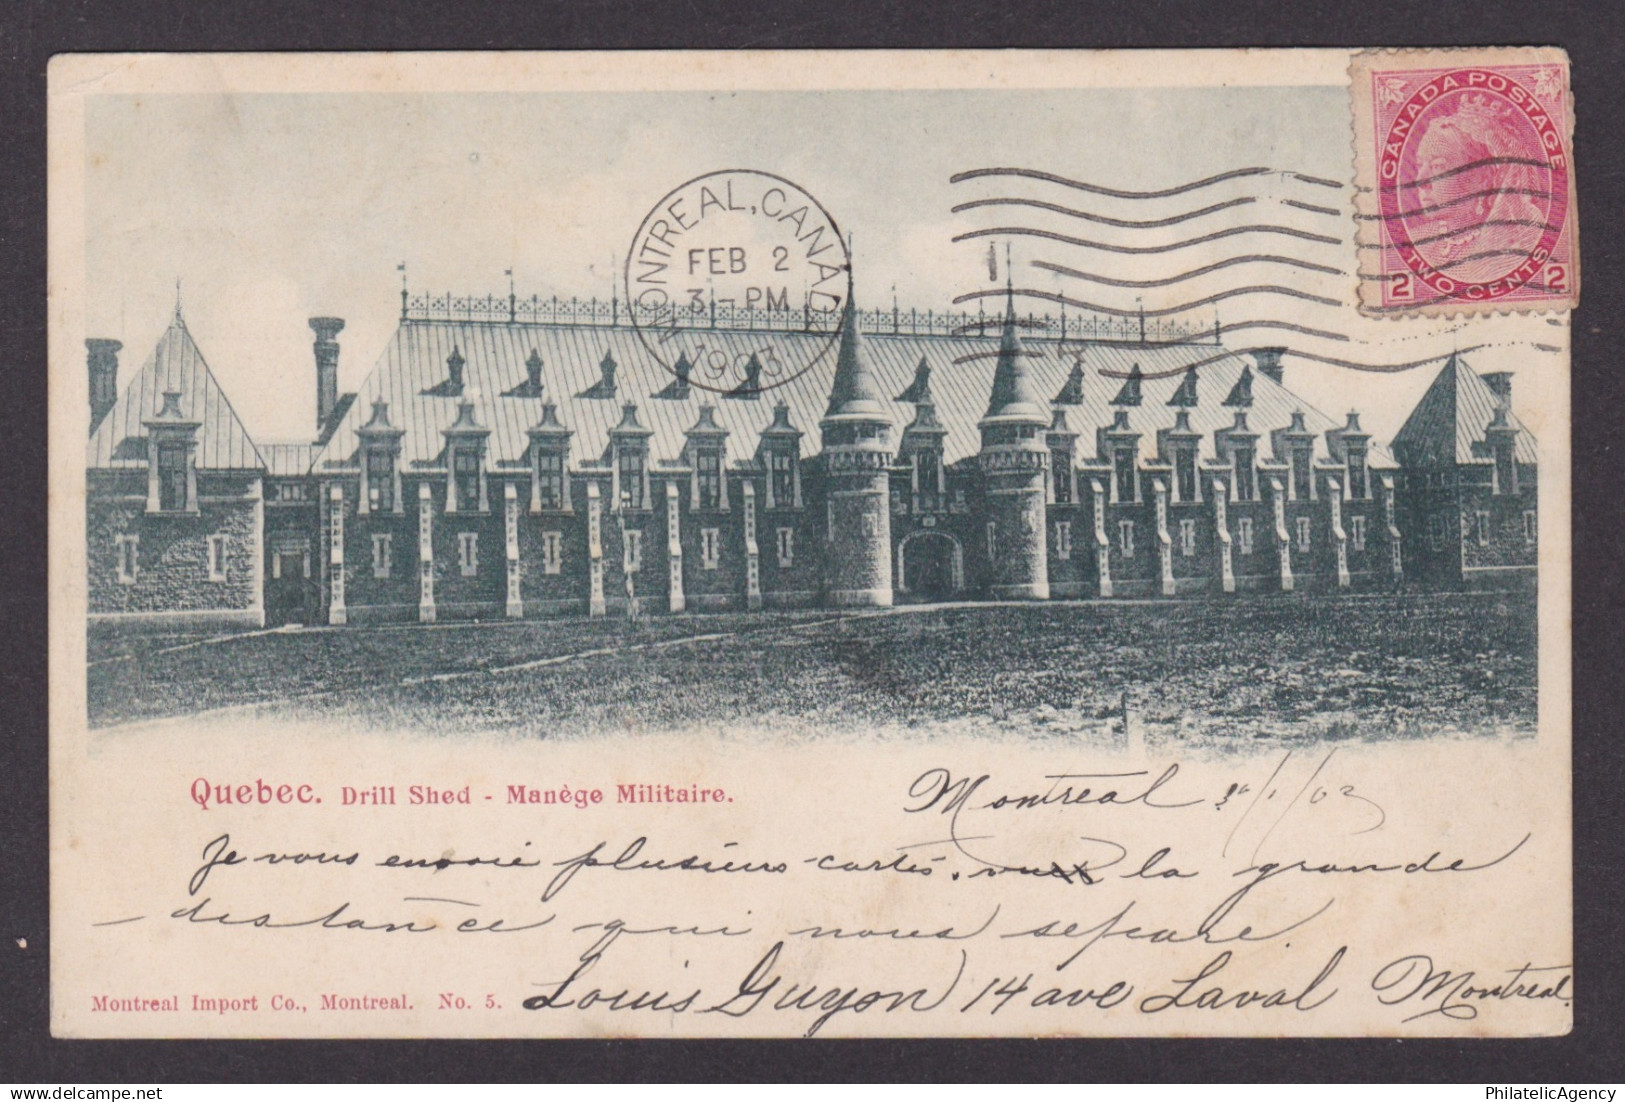 CANADA POSTAGE
2 TWO CENTS 2
MONTREAL, CANADA
FEB 2
3 - PM
1903
Quebec. Drill Shed - Manège Militaire.
Montreal /1/03
Je vous envoie plusieurs cartes. vu la grande
distance qui nous sépare.
Louis Guyon 14 ave Laval Montreal.
Montreal Import Co., Montreal. No. 5.
PhilatelicAgency